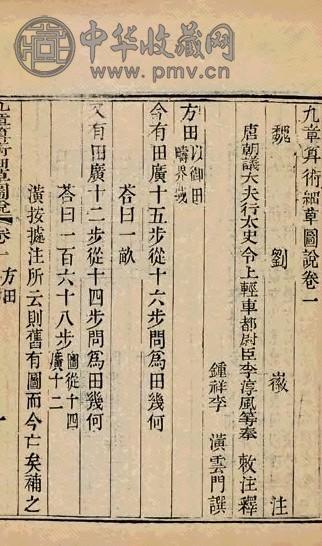 中华收藏网
www.pmv.cn
九章算術細草圖說卷一
魏　劉　徽　注
唐朝議大夫行太史令上輕車都尉臣李淳風等奉　敕注釋
鍾祥李　潢雲門譔
方田以御田疇界域
今有田廣十五步從十六步問爲田幾何
荅曰一畝
又有田廣十二步從十四步問爲田幾何
荅曰一百六十八步圖從十四廣十二
潢按據注所云則舊有圖而今亡矣補之
九章算術細草圖說　卷一　方田　一